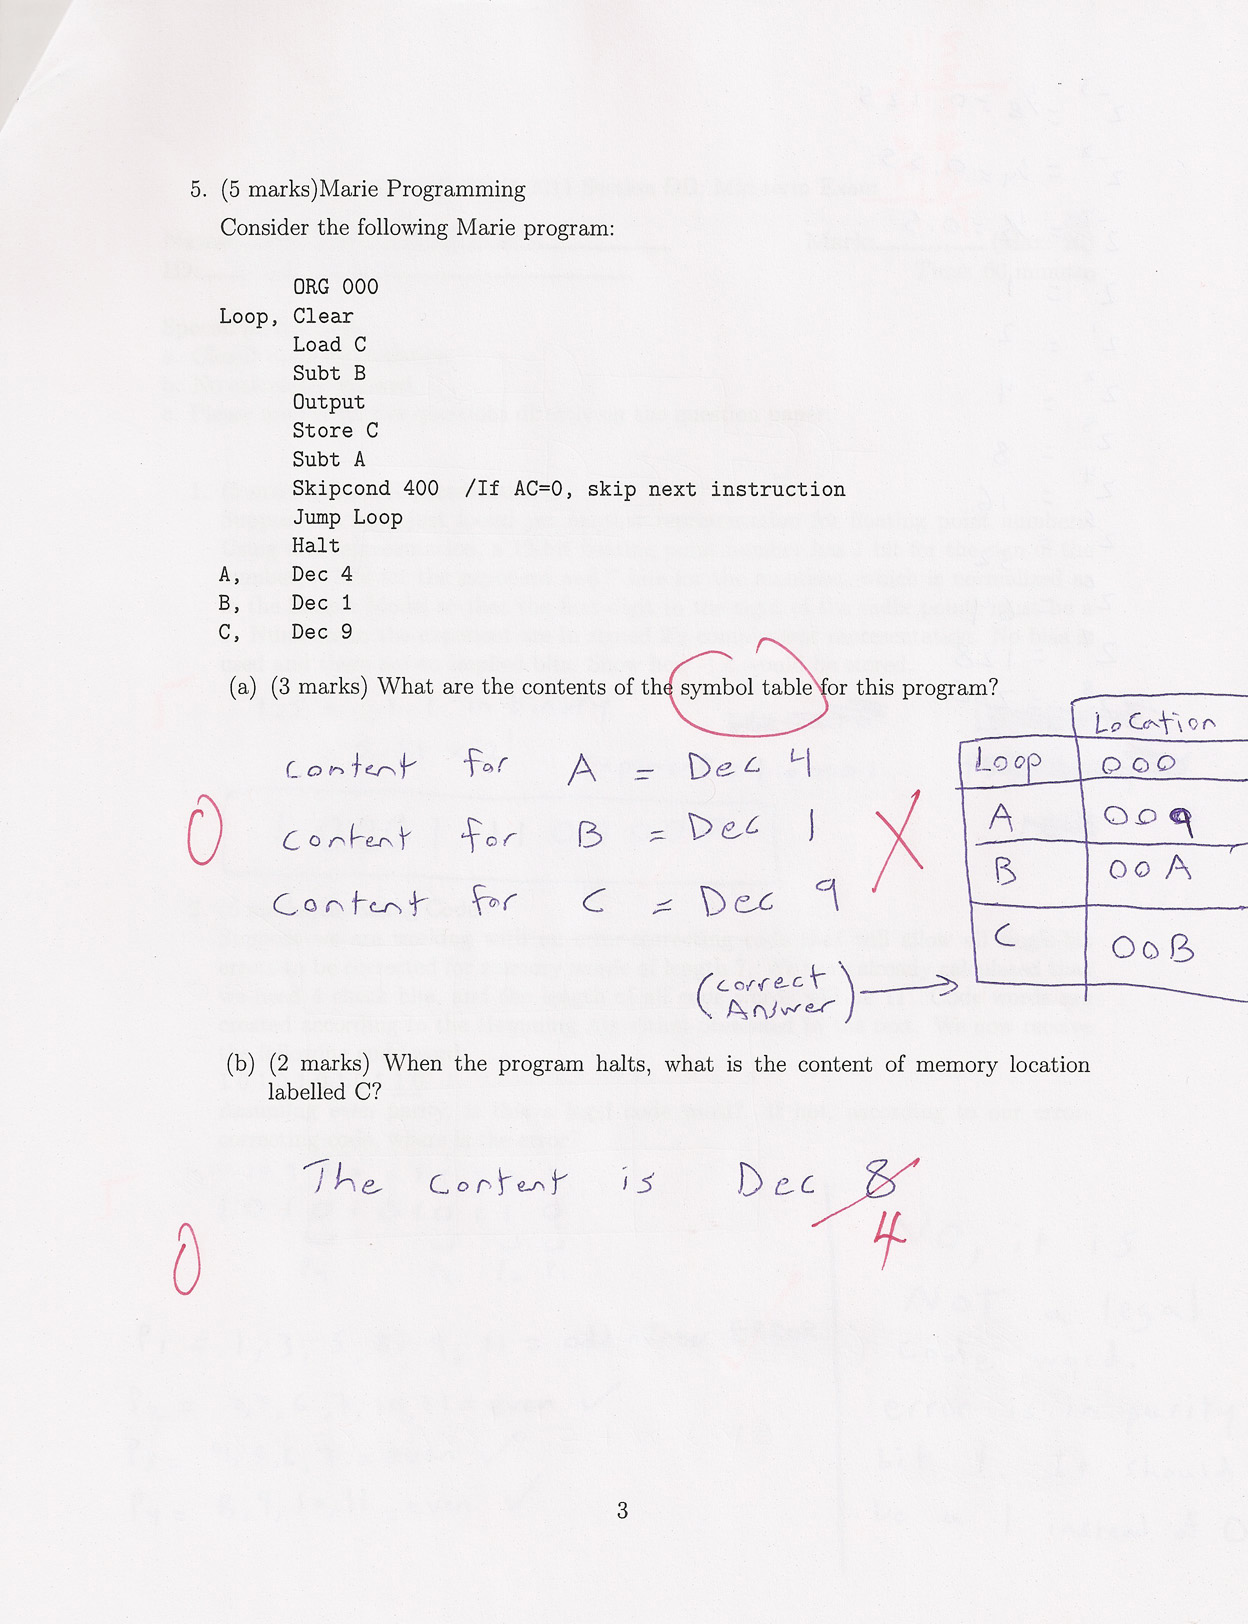 5. (5 marks)Marie Programming
Consider the following Marie program:
ORG 000
Loop, Clear
Load C
Subt B
Output
Store C
Subt A
Skipcond 400 /If AC=0, skip next instruction
Jump Loop
Halt
A, Dec 4
B, Dec 1
C, Dec 9
(a) (3 marks) What are the contents of the symbol table for this program?
Location
Loop 000
A 009
B 00A
C 00B
content for A = Dec 4
0
content for B = Dec 1
content for C = Dec 9
(correct
Answer)
(b) (2 marks) When the program halts, what is the content of memory location
labelled C?
The content is Dec 8
4
0
3